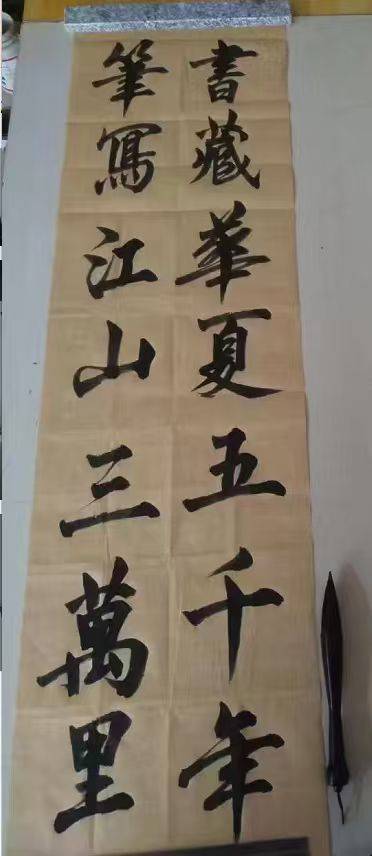 書藏華夏五千年
筆寫江山三萬里